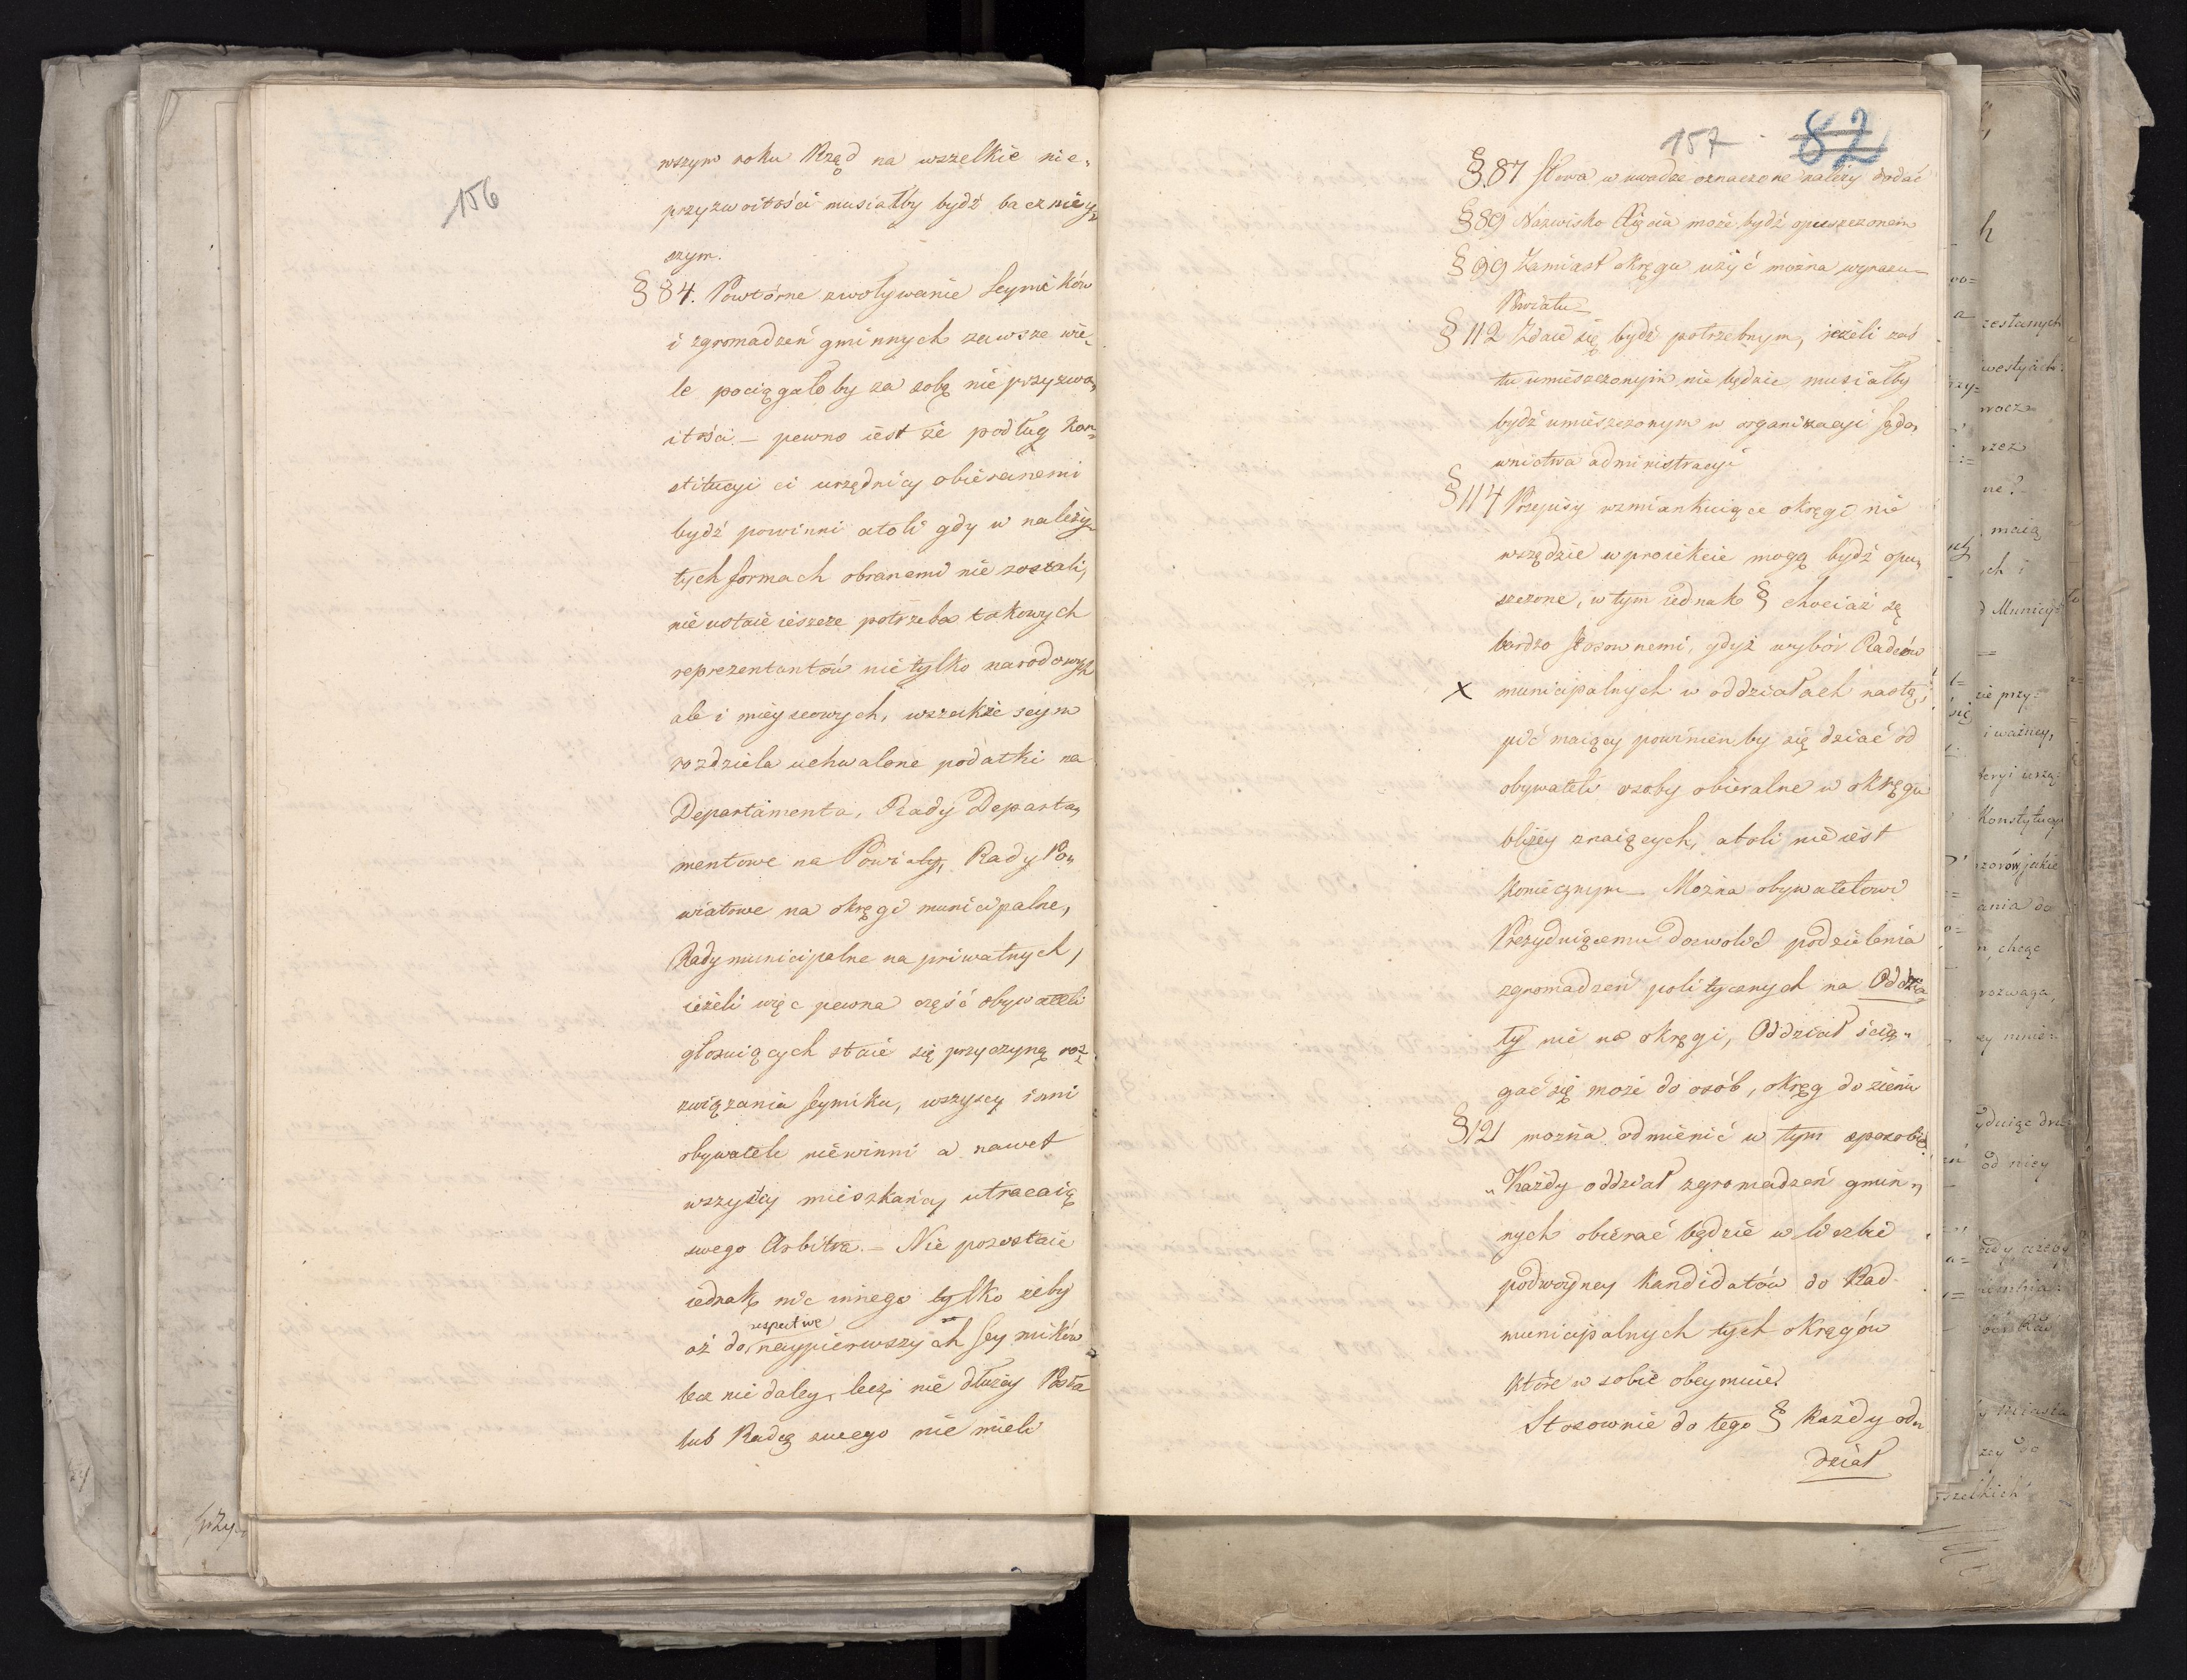 156
wszym roku Rząd na wszelkie nie„
przyzwoitości musiałby bydź baczniey„
szym.
§ 84. Powtórne zwoływanie Seymików
i zgromadzeń gminnych zawsze wie„
le pociągałoby za sobą nieprzyzwo„
itości — pewno iest że podług Kon„
stitucyi ci urzędnicy obieranemi
bydź powinni atoli gdy w należy„
tych formach obranemi nie zostali,
nie ustaie ieszcze potrzeba takowych
reprezentantów nietylko narodowych
ale i mieyscowych, wszakże seym
rozdziela uchwalone podatki na
Departamenta, Rady Departa„
mentowe na Powiaty, Rady Po„
wiatowe na okręgi municipalne,
Rady municipalne na priwatnych,
ieżeli więc pewna część obywateli
głosuiących staie się przyczyną roz„
związania Seymiku, wszyscy inni
obywatele niewinni a nawet
wszyscy mieszkańcy utracaią
swego Arbitra. — Nie pozostaie
iednak nic innego tylko żeby
respective
aż do naypierwszych Seymików
lecz nie daley, lecz nie dłużey Posła
lub Radcę swego nie mieli
157 82
§.87 Słowa w uwadze oznaczone należy dodać
§89 Nazwisko Aignia może bydź opuszczonem
§99 Zamiast okręgu użyć można wyrazu
Powiatu
§112 Zdaie się bydź potrzebnym, ieżeli zaś
tu umieszczonym nie będzie musiałby
bydź umieszczonym w organizacyi sądo„
wnictwa administracyi
§114 Przepisy wzmiankuiące okręgi nie
wszędzie w proiekcie mogą bydź opu„
szczone, w tym iednak § chociaż są
bardzo stosownemi, gdyż wybór Radców
x municipalnych w oddziałach nastą„
pić maiący powinien by się dziać od
obywateli osoby obieralne w okręgu
bliżey znaiących, atoli nie iest
koniecznym — Można obywatelowi
Prezyduiącemu dozwolić podzielenia
zgromadzeń politycznych na Oddzia„
ły nie na okręgi, Oddział ścią„
gać się może do osób, okręg do ziemi
§121 można odmienić w tym sposobie
„Każdy oddział zgromadzeń gmin„
nych obierać będzie w liczbie
podwóyney kandidatów do Rad
municipalnych tych okręgów
które w sobie obeymuie.
Stosownie do tego § każdy od„
dział